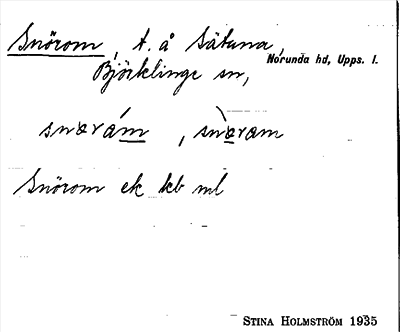 Snörom, t. å Sätuna,
Norunda hd, Upps. l.
Björklinge sn,
snœrám, snœ̀ram
Snörom ek kb ml
STINA HOLMSTRÖM 1935